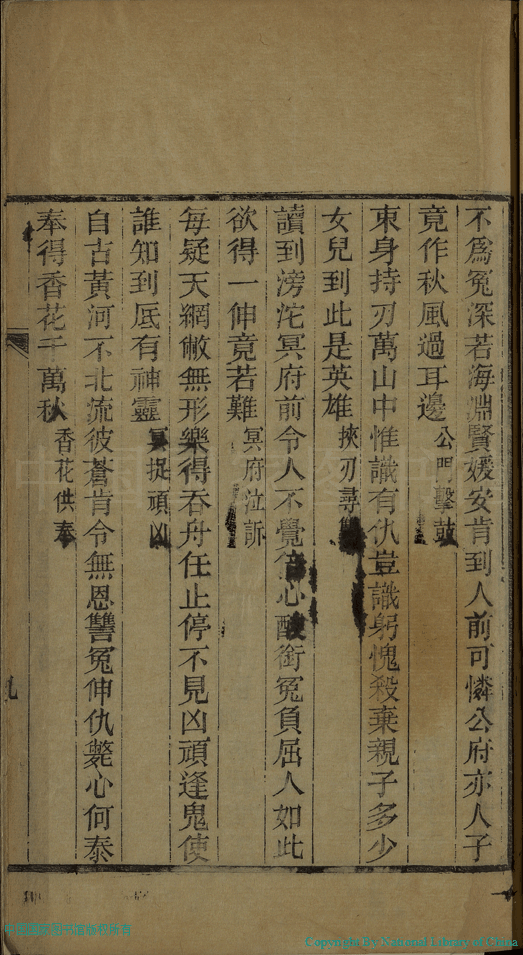 不爲冤深若海淵賢媛安肯到人前可憐公府亦人子
竟作秋風過耳邊 公門擊鼓
束身持刃萬山中惟識有仇豈識躬愧殺棄親子多少
女兒到此是英雄 挾刃尋
讀到滂沱冥府前令人不覺心酸銜冤負屈人如此
欲得一伸竟若難 冥府泣訴
每疑天網敝無形樂得吞舟任止停不見凶頑逢鬼使
誰知到底有神靈 冥捉頑凶
自古黃河不北流彼蒼肯令無恩讐冤伸仇斃心何泰
奉得香花千萬秋 香花供奉
九
Copyright By National Library of China